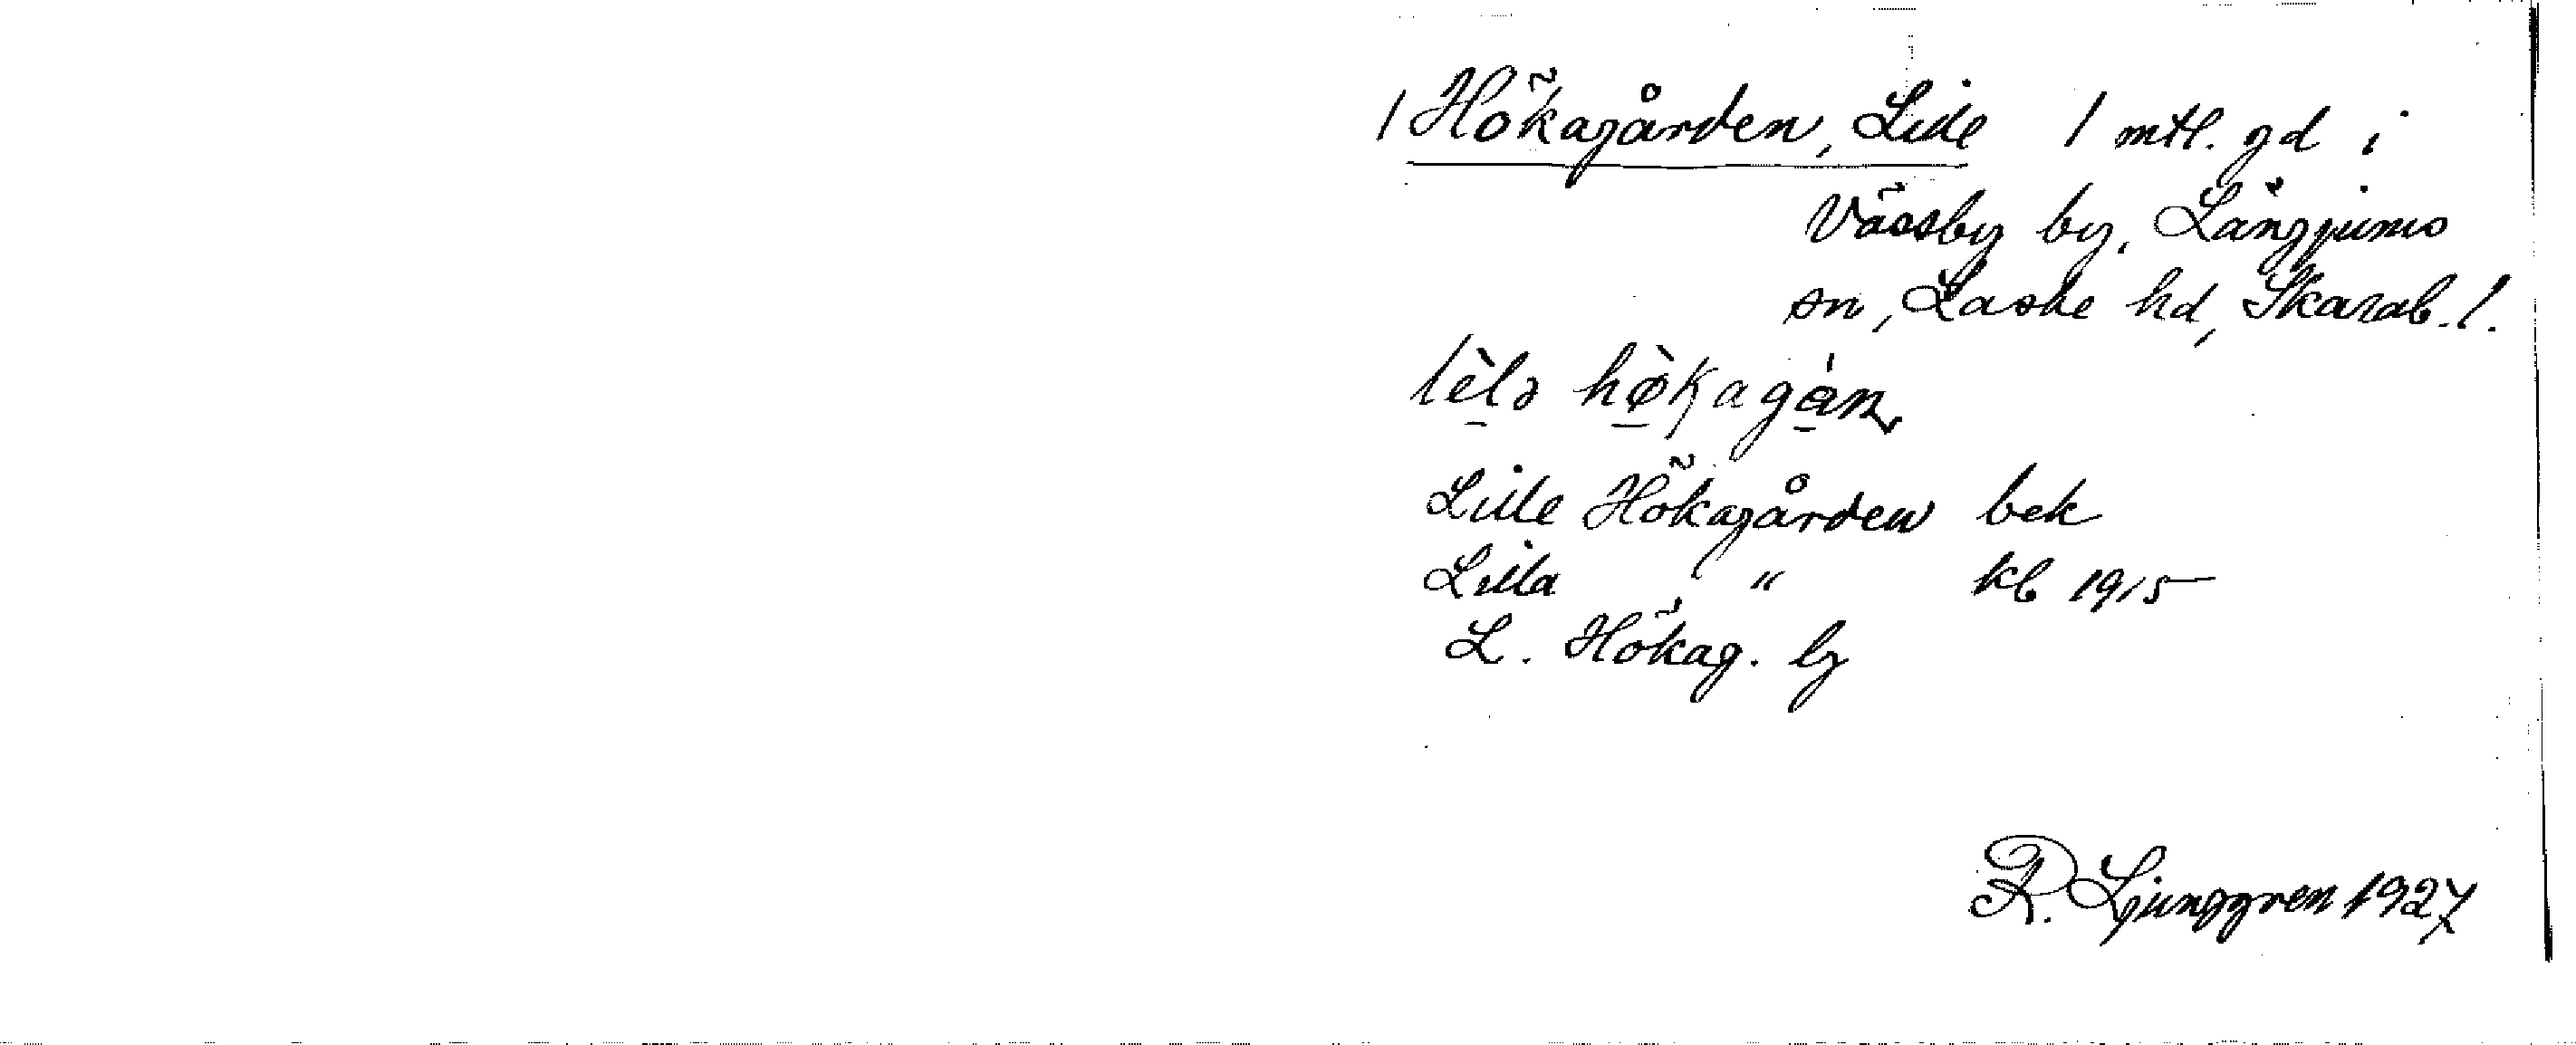 / Hökagården, Lille 1 mtl. gd i
Vässby by, Långjums
sn, Laske hd, Skarab. l.
lèlə hø̀kagàɳ
Lille Hökagården bek
Lilla " kb 1915
L. Hökag. lg
R. Ljunggren 1927